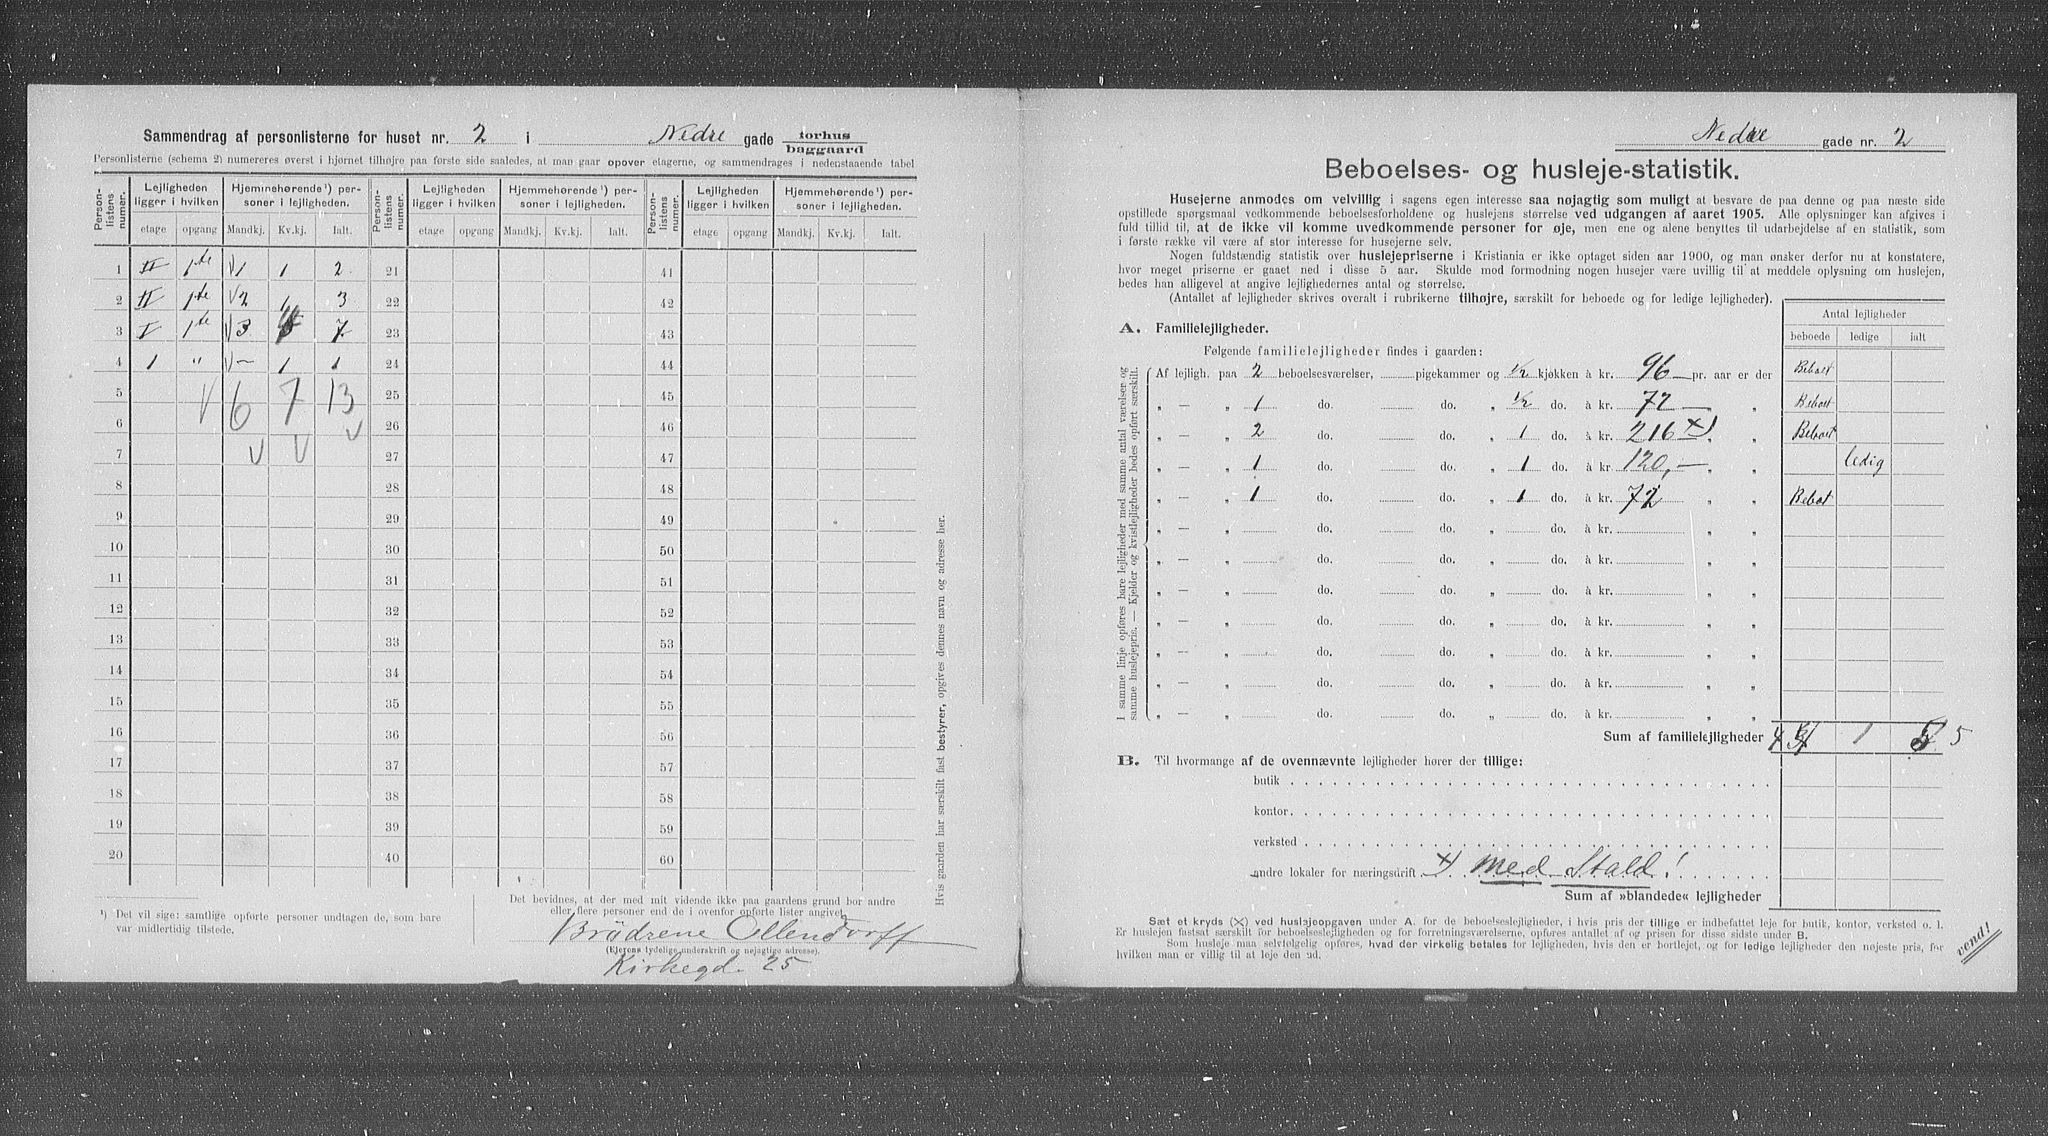 Sammendrag af personlisterne for huset nr. 2 i Nedre gade forhus
baggaard
Personlisterne (schema 2) numereres øverst i hjørnet tilhøjre paa første side saaledes, at man gaar opover etagerne, og sammendrages i nedenstaaende tabel
Person-listens numer. Lejligheden ligger i hvilken Hjemmehørende¹) personer i lejligheden. Person-listens numer. Lejligheden ligger i hvilken Hjemmehørende¹) personer i lejligheden. Person-listens numer. Lejligheden ligger i hvilken Hjemmehørende¹) personer i lejligheden.
etage opgang Mandkj. Kv.kj. Ialt. etage opgang Mandkj. Kv.kj. Ialt. etage opgang Mandkj. Kv.kj. Ialt.
1 II 1ste V1 1 2 21 41
2 II 1ste V2 1 3 22 42
3 I 1ste V3 7 23 43
4 1 " V- 1 1 24 44
5 V 6 7 13 25 45
6 V 26 46
7 V V 27 47
8 28 48
9 29 49
10 30 50
11 31 51
12 32 52
13 33 53
14 34 54
15 35 55
16 36 56
17 37 57
18 38 58
19 39 59
20 40 60
¹) Det vil sige: samtlige opførte personer undtagen de, som bare
var midlertidig tilstede.
Det bevidnes, at der med mit vidende ikke paa gaardens grund bor andre
eller flere personer end de i ovenfor opførte lister angivet
Brödrene Ollendorff
(Ejerens tydelige underskrift og nøjagtige adresse).
Kirkegd. 25
Hvis gaarden har særskilt fast bestyrer, opgives dennes navn og adresse her.
Nedre gade nr. 2
Beboelses- og husleje-statistik.
Husejerne anmodes om velvillig i sagens egen interesse saa nøjagtig som muligt at besvare de paa denne og paa næste side
opstillede spørgsmaal vedkommende beboelsesforholdene og huslejens størrelse ved udgangen af aaret 1905. Alle oplysninger kan afgives i
fuld tillid til, at de ikke vil komme uvedkommende personer for øje, men ene og alene benyttes til udarbejdelse af en statistik, som
i første række vil være af stor interesse for husejerne selv.
Nogen fuldstændig statistik over huslejepriserne i Kristiania er ikke optaget siden aar 1900, og man ønsker derfor nu at konstatere,
hvor meget priserne er gaaet ned i disse 5 aar. Skulde mod formodning nogen husejer være uvillig til at meddele oplysning om huslejen,
bedes han alligevel at angive lejlighedernes antal og størrelse.
(Antallet af lejligheder skrives overalt i rubrikerne tilhøjre, særskilt for beboede og for ledige lejligheder).
Antal lejligheder
beboede ledige ialt
A. Familielejligheder.
Følgende familielejligheder findes i gaarden:
I samme linje opføres bare lejligheder med samme antal værelser og
samme huslejepris. — Kjelder og kvistlejligheder bedes opført særskilt.
Af lejligh. paa 2 beboelsesværelser, pigekammer og ½ kjøkken à kr. 96 — pr. aar er der Beboet
„ — „ 1 do. do. „ ½ do. à kr. 72 — „ „ Beboet
„ — „ 2 do. do. „ 1 do. à kr. 216 x) „ „ Beboet
„ — „ 1 do. do. „ 1 do. à kr 120,— „ „ ledig
„ — „ 1 do. do. „ 1 do. à kr. 72 „ „ Beboet
„ — „ do. do. „ do. à kr. „ „
„ — „ do. do. „ do. à kr. „ „
„ — „ do. do. „ do. à kr. „ „
„ — „ do. do. „ do. à kr. „ „
„ — „ do. do. „ do. à kr. „ „
„ — „ do. do. „ do. à kr. „ „
„ — „ do. do. „ do. à kr. „ „
Sum af familielejligheder 4 1 5
B. Til hvormange af de ovennævnte lejligheder hører der tillige:
butik
kontor
verksted
andre lokaler for næringsdrift x) med Stald!
Sum af »blandede« lejligheder
Sæt et kryds (X) ved huslejeopgaven under A. for de beboelseslejligheder, i hvis pris der tillige er indbefattet leje for butik, kontor, verksted o. l.
Er huslejen fastsat særskilt for beboelseslejligheden og for forretningsværelserne, opføres antallet af og prisen for disse sidste under B.
Som husleje maa selvfølgelig opføres, hvad der virkelig betales for lejligheden, hvis den er bortlejet, og for ledige lejligheder den nøjeste pris, for
hvilken man er villig til at leje den ud.
vend!